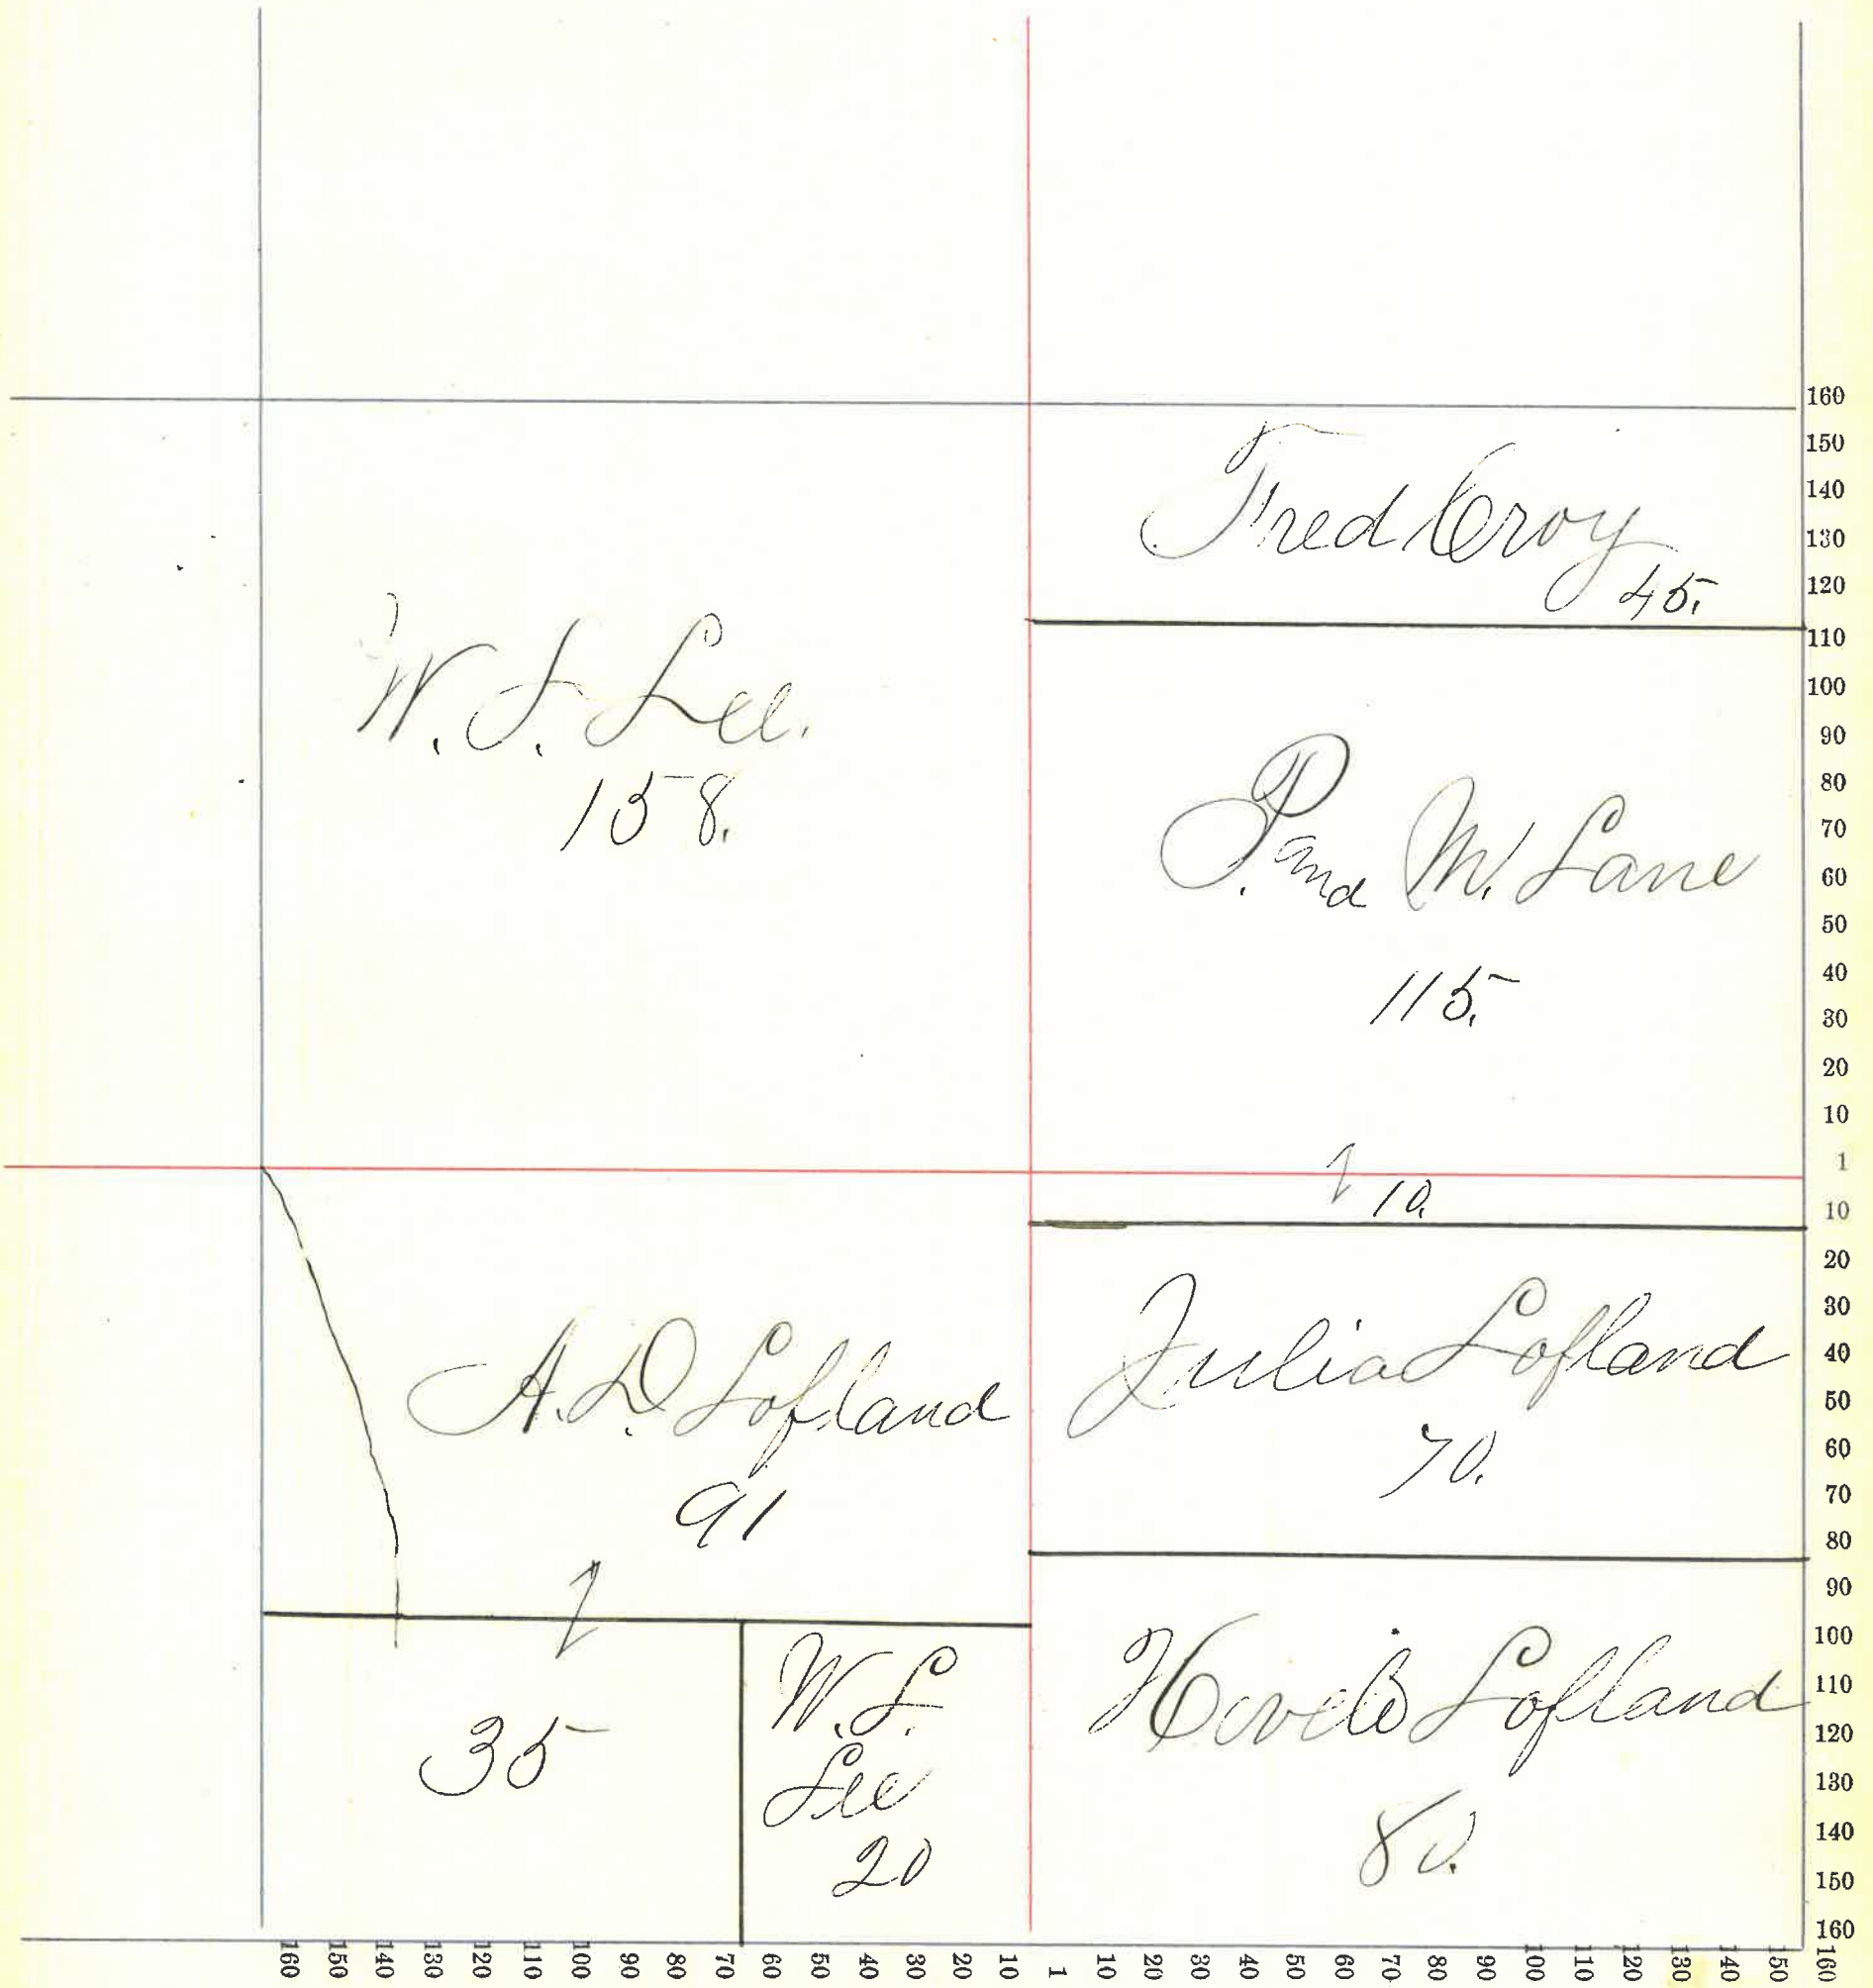 Fred Croy
45.
W. S. Lee.
158.
P. and M. Lane
115.
10.
A. D. Lofland
91
Julia Lofland
70.
35
W. S.
Lee
20
Lofland
80.
160
150
140
130
120
110
100
90
80
70
60
50
40
30
20
10
1
10
20
30
40
50
60
70
80
90
100
110
120
130
140
150
160
160 150 140 130 120 110 100 90 80 70 60 50 40 30 20 10 1 10 20 30 40 50 60 70 80 90 100 110 120 130 140 150 160